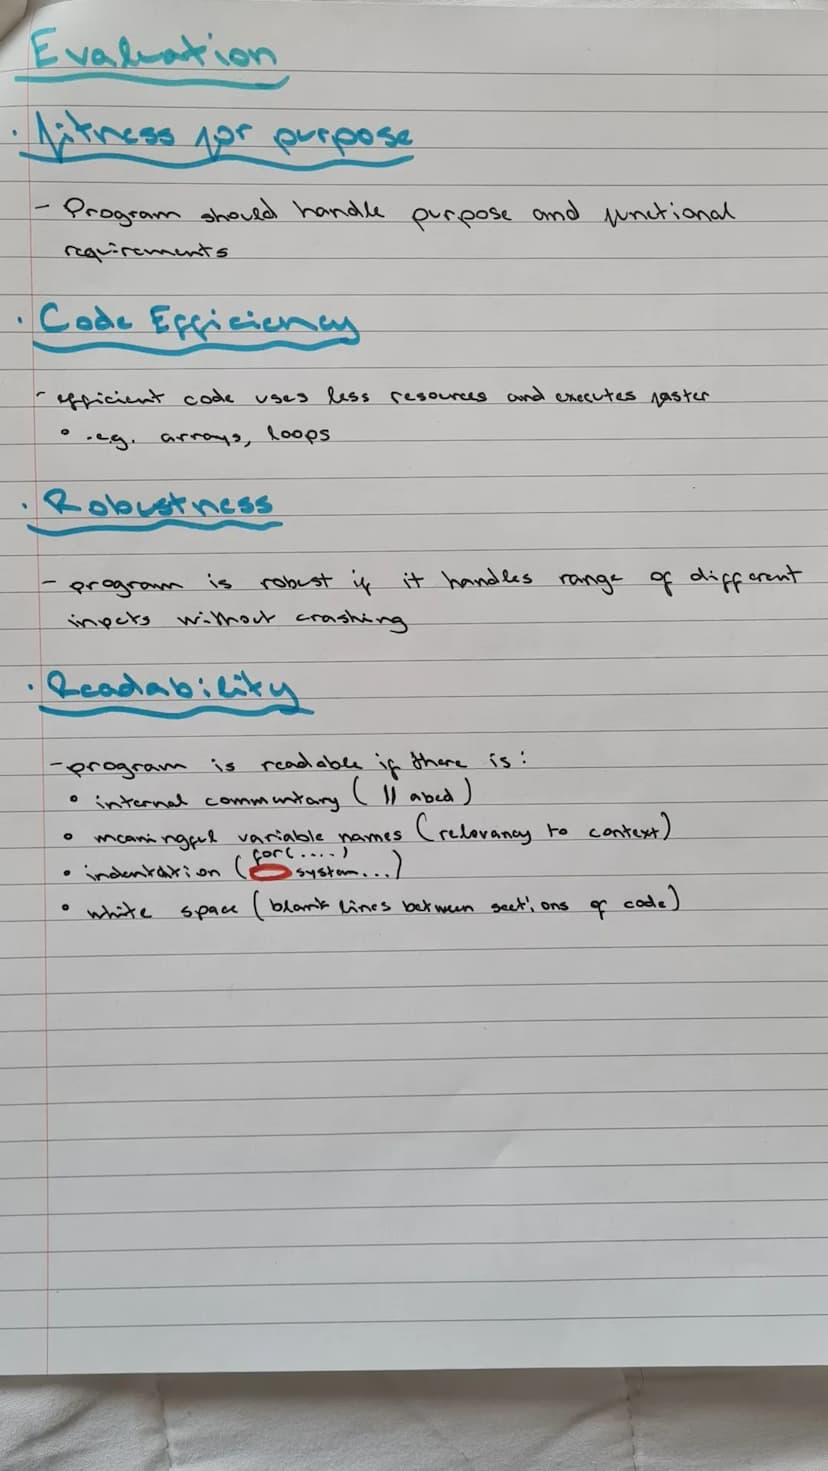 Evaluation
· Fitness for purpose
- Program should handle purpose and functional
requirements
· Code Efficiency
- efficient code uses less resources and executes faster
° .e.g. arrays, loops
· Robustness
- program is robust if it handles range of different
inputs without crashing
· Readability
- program is readable if there is:
° internal commentary ( || abcd )
° meaningful variable names (relevancy to context)
for(....)
° indentation ( system...)
° white space (blank lines between sections of code)